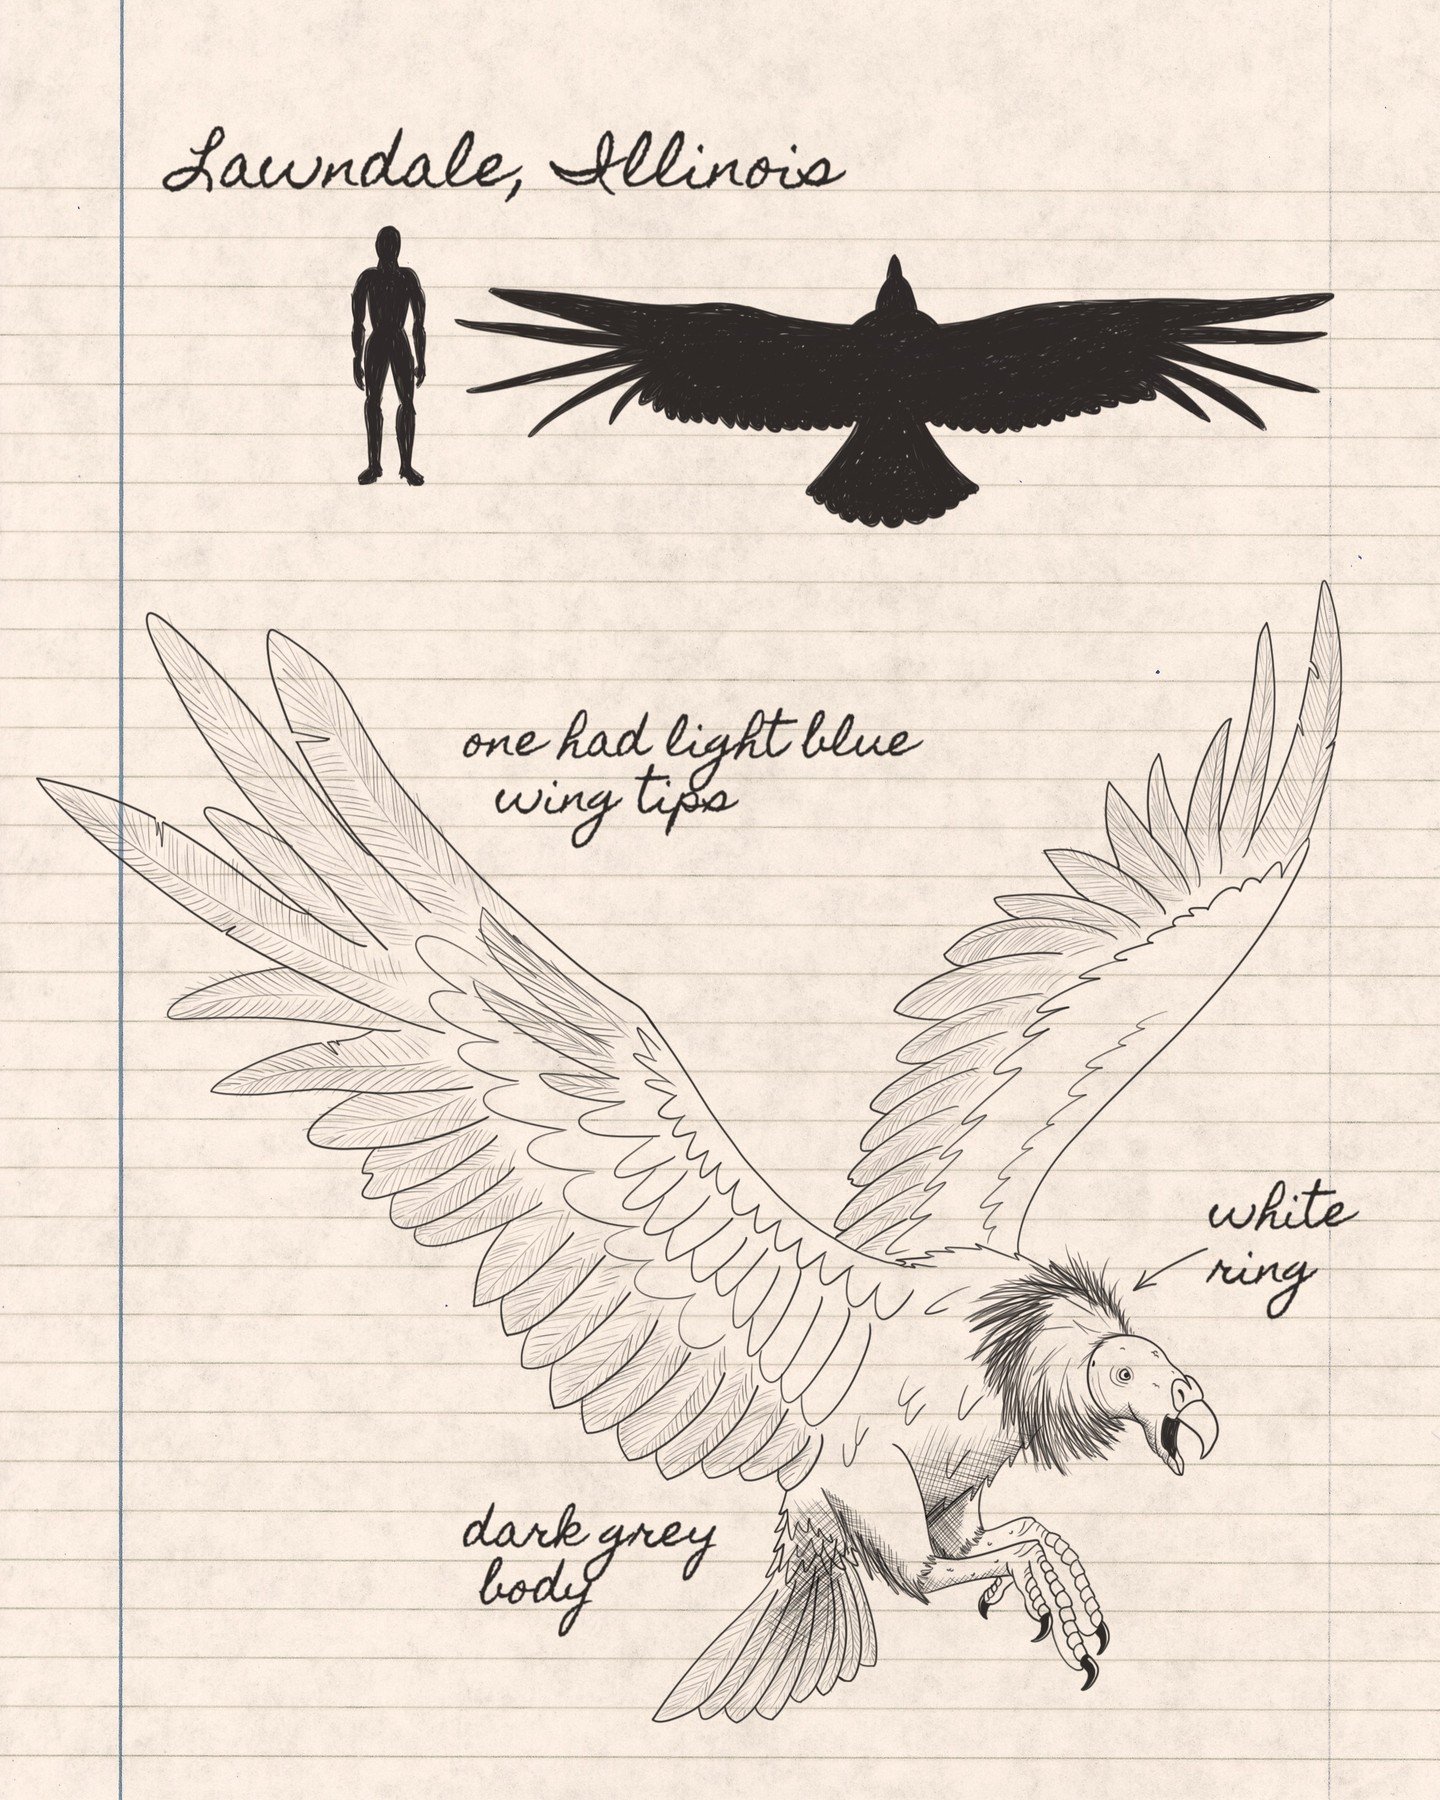 Lawndale, Illinois
one had light blue
wing tips
white
ring
dark grey
body